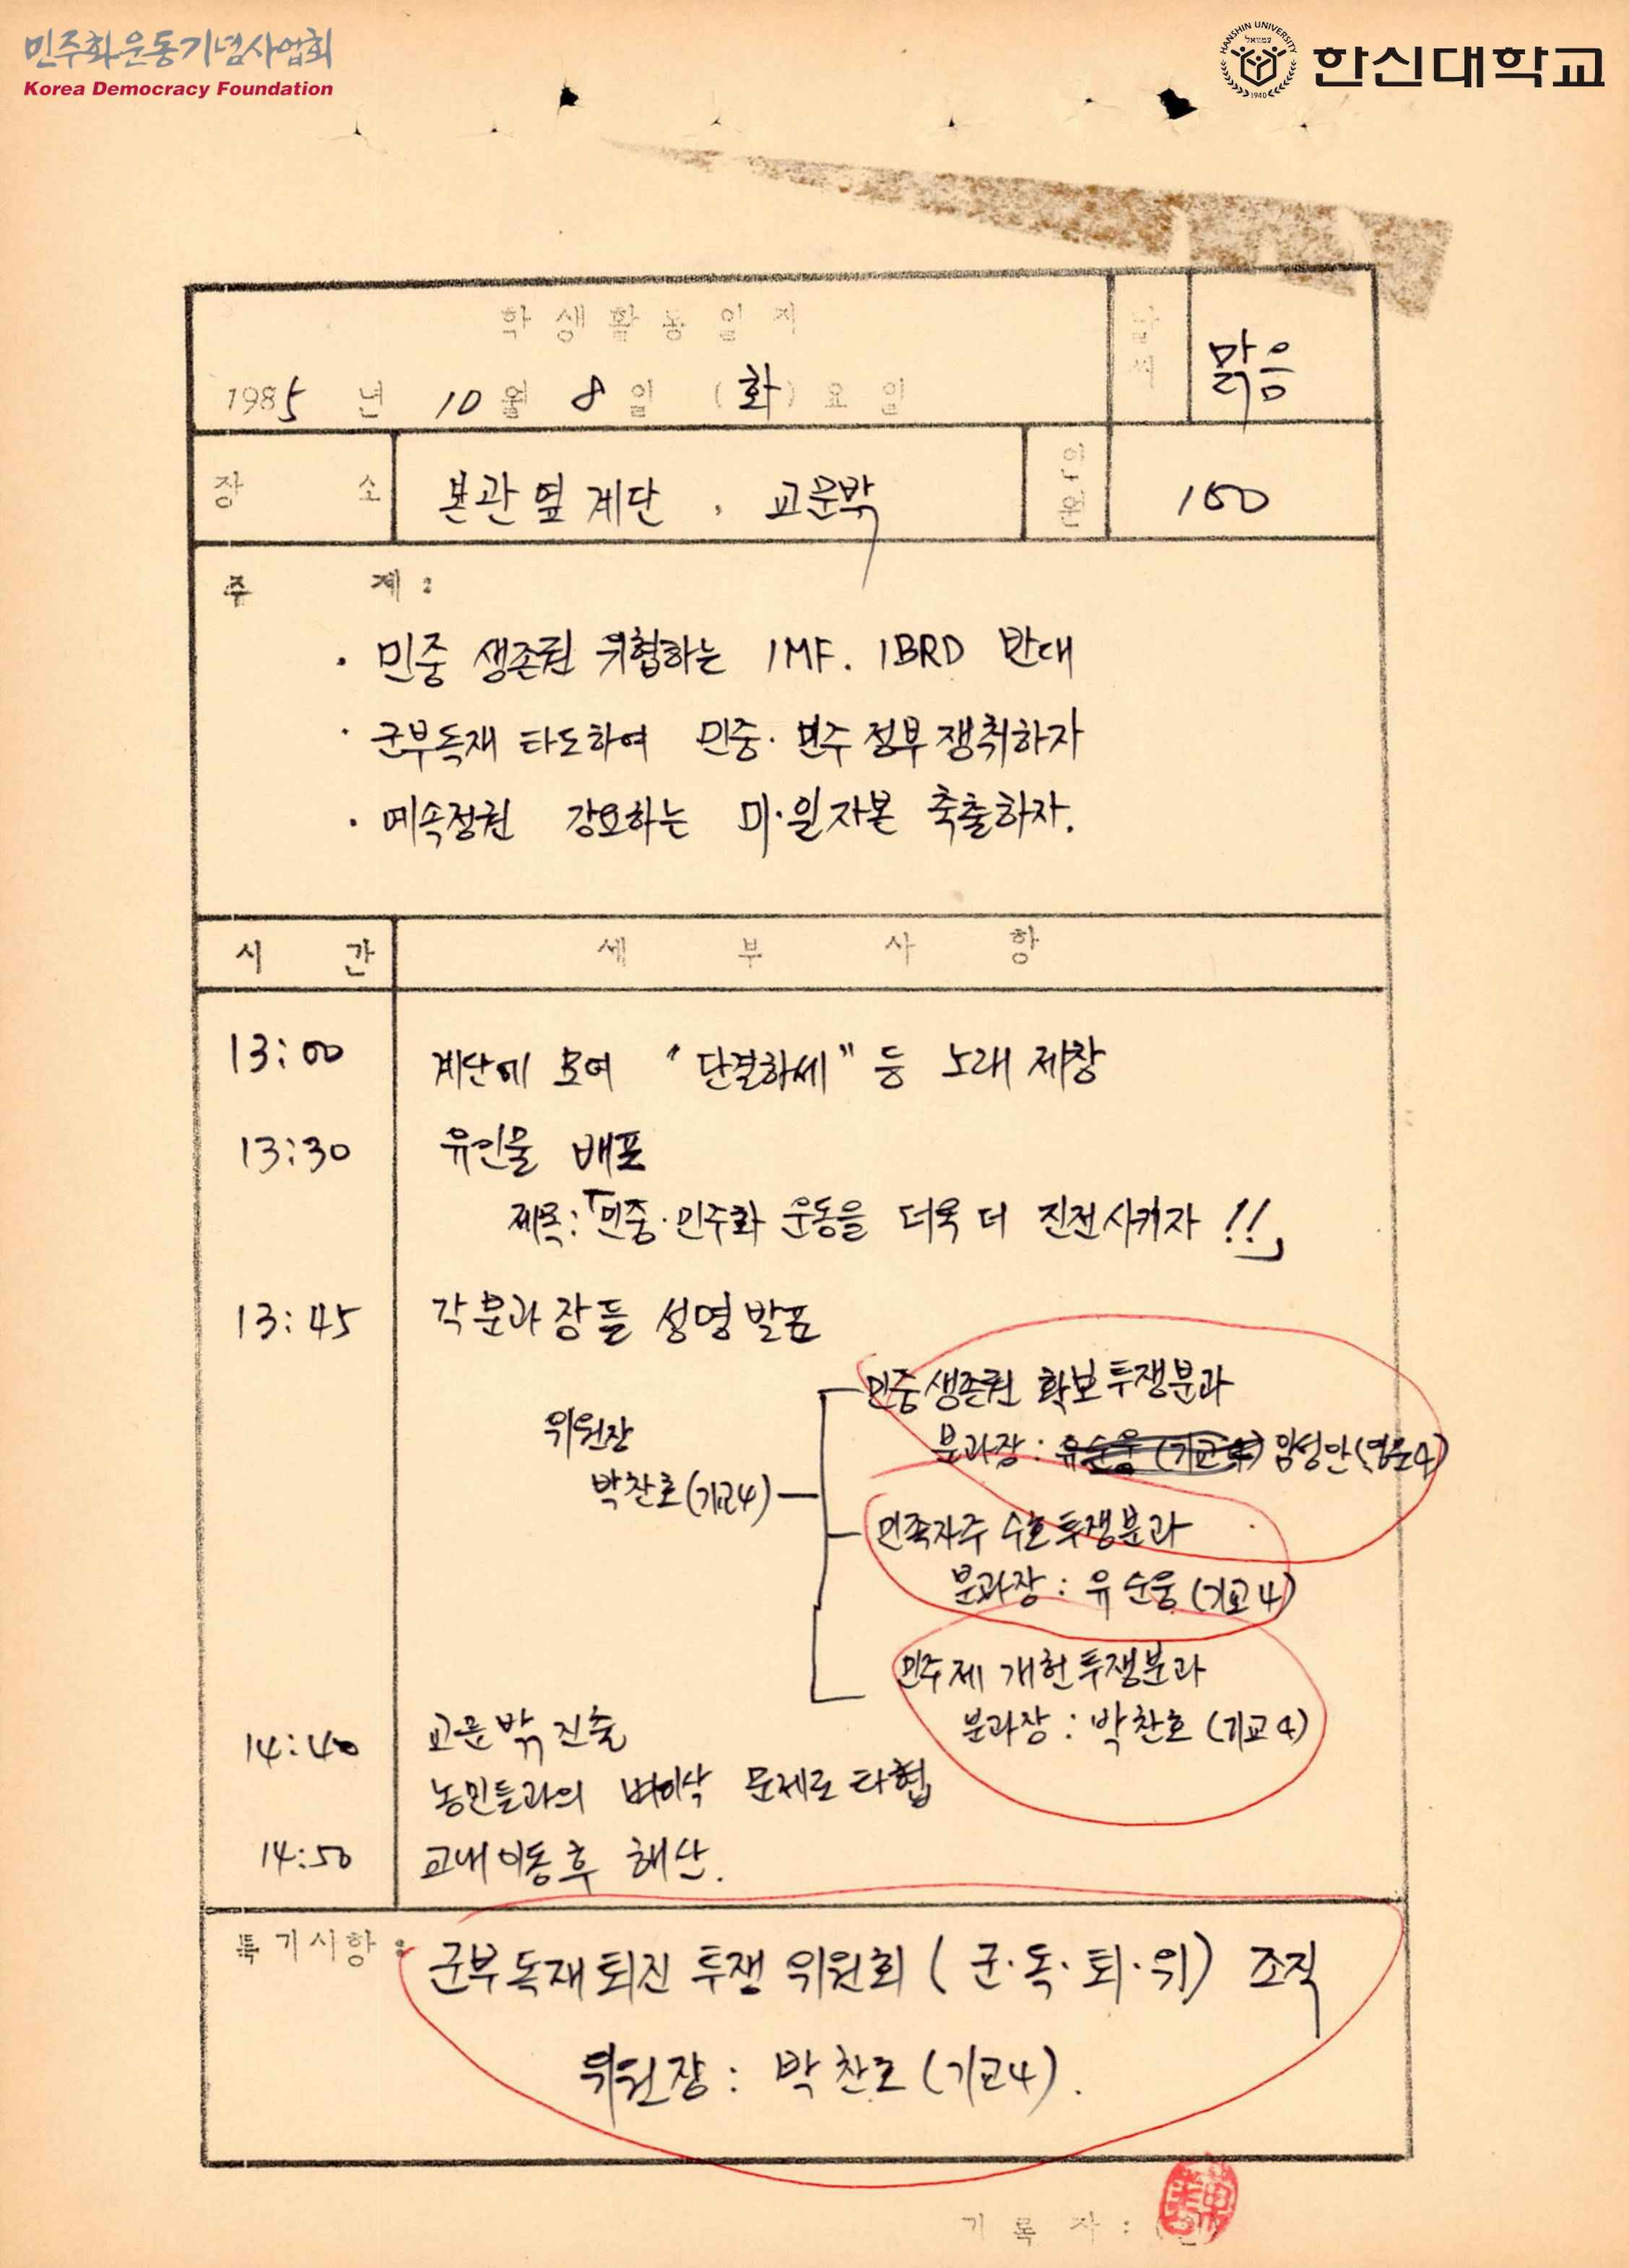 민주화운동기념사업회
Korea Democracy Foundation
HANSHIN UNIVERSITY
1940
한신대학교
학생활동일지
날씨
맑음
1985년 10월 8일 (화)요일
장소
본관 옆 계단, 교문밖
인원
100
주제:
· 민중 생존권 위협하는 IMF. IBRD 반대
· 군부독재 타도하여 민중·민주 정부 쟁취하자
· 예속정권 강요하는 미·일 자본 축출하자.
시간
세부사항
13:00 계단에 모여 "단결하세" 등 노래 제창
13:30 유인물 배포
제목:「민중·민주화 운동을 더욱 더 진전시키자!!」
13:45 각 분과장들 성명 발표
민중생존권 확보투쟁분과
위원장
분과장: 유순웅(기교4) 암성안(영문4)
박찬호(기교4)
민족자주 수호투쟁분과
분과장: 유순웅(기교4)
민주제 개헌투쟁분과
분과장: 박찬호(기교4)
14:40 교문 밖 진출
농민들과의 벼이삭 문제로 타협
14:50 교내 이동 후 해산.
특기사항: 군부독재퇴진 투쟁 위원회 (군·독·퇴·위) 조직
위원장: 박찬호(기교4).
기록자: (인)